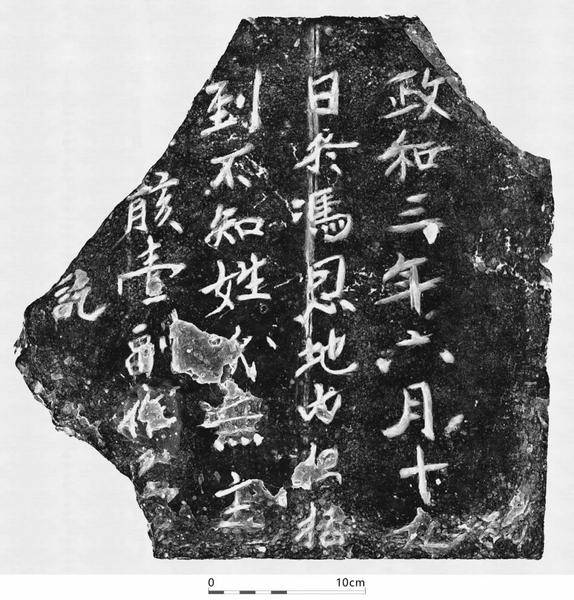 政和三年六月十九
日於馮恩地内括
到不知姓氏無主
骸壹副
訖
0 10cm